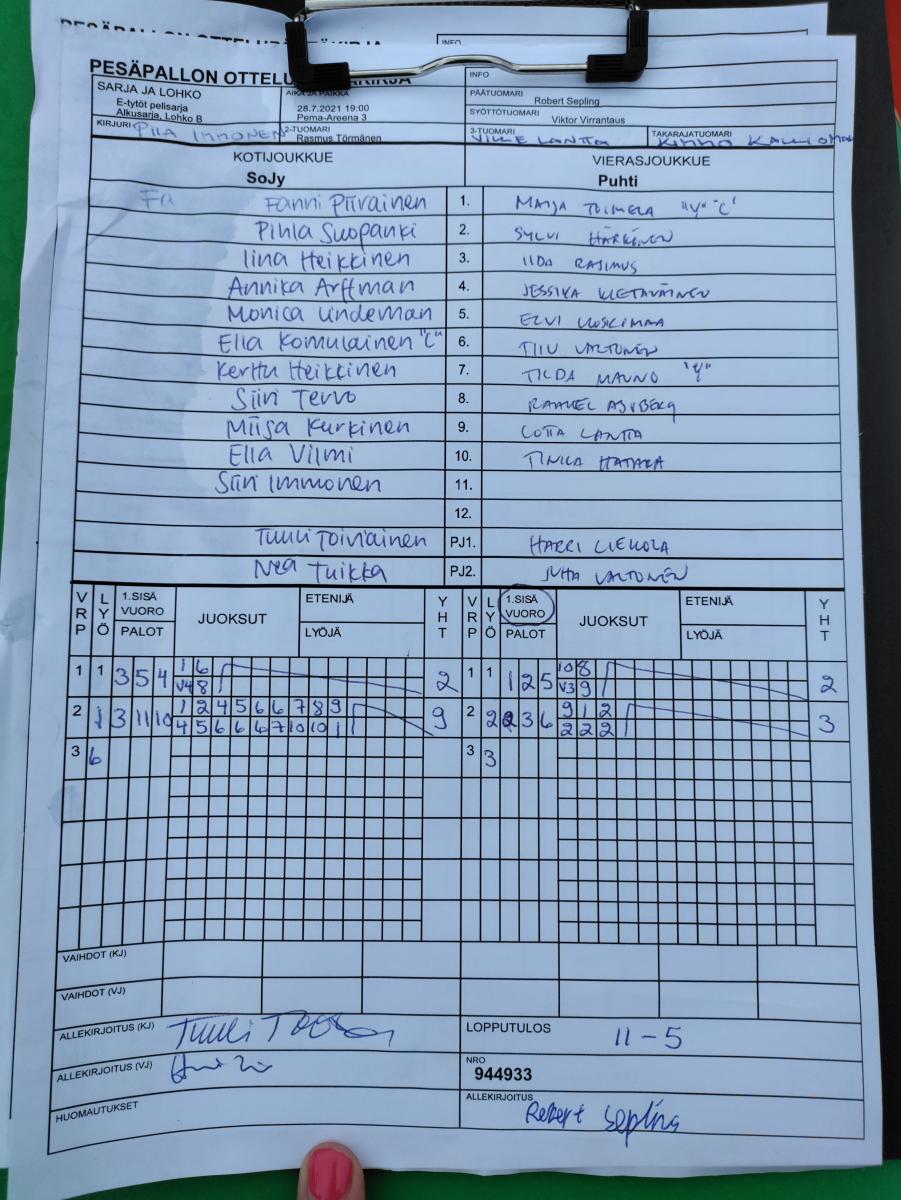 PESÄPALLON OTTELUPÖYTÄKIRJA
INFO
PESÄPALLON OTTELU KIRJA
INFO
SARJA JA LOHKO
E-tytöt pelisarja
Alkusarja, Lohko B
AIKA JA PAIKKA
28.7.2021 19:00
Pema-Areena 3
PÄÄTUOMARI
Robert Sepling
SYÖTTÖTUOMARI
Viktor Virrantaus
KIRJURI PIIA IMMONEN
2-TUOMARI
Rasmus Törmänen
3-TUOMARI
VILLE LANTTA
TAKARAJATUOMARI
KIMMO
KOTIJOUKKUE
SoJy
VIERASJOUKKUE
Puhti
Fa Fanni Piirainen 1. MAIJA TUIMELA "V" "C"
Pihla Suopanki 2. SYLVI HÄRKÖNEN
Iina Heikkinen 3. IIDA RASIMUS
Annika Arffman 4. JESSIKA KIETÄVÄINEN
Monica Lindeman 5. ELVI
Ella Komulainen "C" 6. TIIU VALTONEN
Kerttu Heikkinen 7. TILDA MAUNO
Siiri Tervo 8.
Miisa Kurkinen 9. LOTTA LANTTA
Ella Vilmi 10.
Siiri Immonen 11.
12.
Tuuli Toiviainen PJ1. HARRI LIEKOLA
Nea Tuikka PJ2. JUHA VALTONEN
VRP LYÖ 1.SISÄ VUORO PALOT JUOKSUT ETENIJÄ LYÖJÄ YHT VRP LYÖ 1.SISÄ VUORO PALOT JUOKSUT ETENIJÄ LYÖJÄ YHT
1 1 3 5 4 1 6 2 1 1 1 2 5 10 8 2
V4 8 V3 9
2 1 3 11 10 1 2 4 5 6 6 7 8 9 9 2 2 2 3 6 9 1 2 3
4 5 6 6 6 7 10 10 1 2 2 2
3 6 3 3
VAIHDOT (KJ)
VAIHDOT (VJ)
ALLEKIRJOITUS (KJ) Tuuli
LOPPUTULOS 11-5
ALLEKIRJOITUS (VJ)
NRO
944933
HUOMAUTUKSET
ALLEKIRJOITUS
Robert Sepling